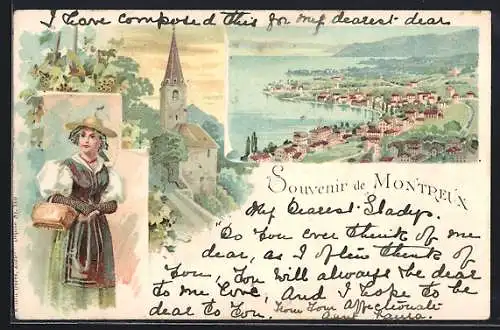 I have composed this for my dearest dear
Souvenir de MONTREUX
My Dearest Gladys.
"Do you ever think of me
dear, as I often think of
you, you will always be dear
to me love, And I hope to be
dear to you. From your Affectionate
Aunt Laura.